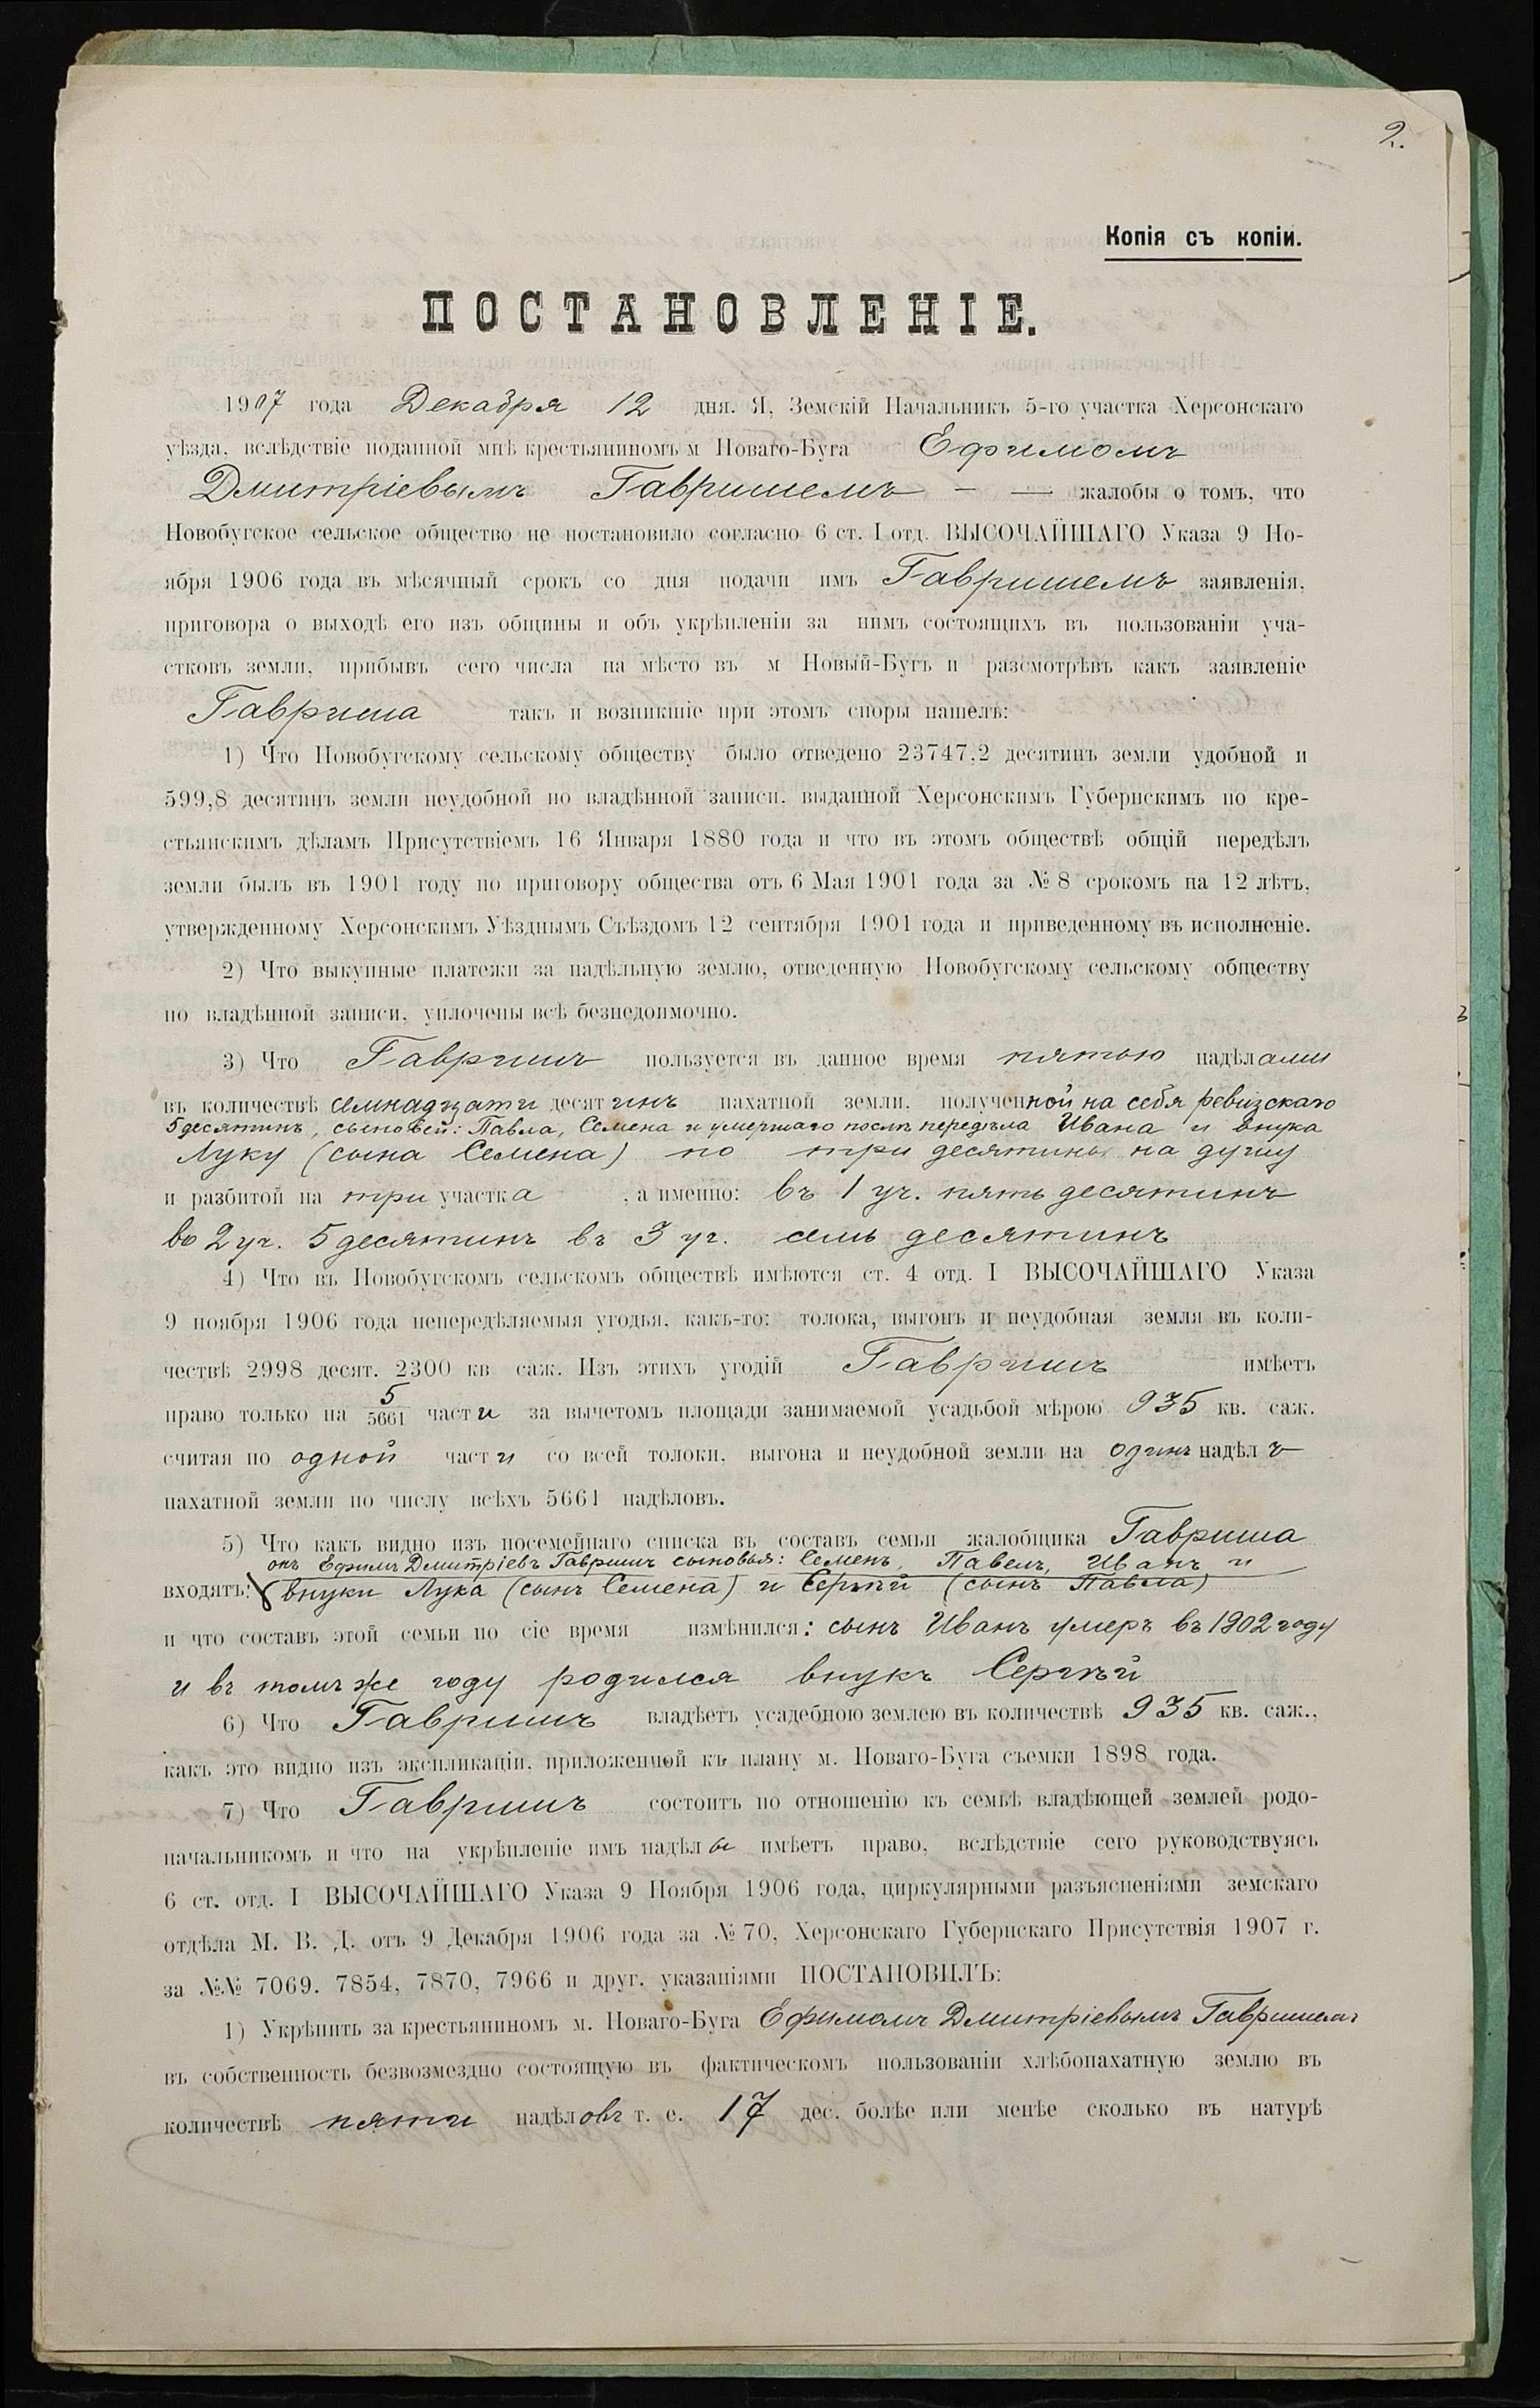 2.
Копія съ копіи.
ПОСТАНОВЛЕНІЕ.
1907 года Декабря 12 дня. Я, Земскій Начальникъ 5-го участка Херсонскаго
уѣзда, вслѣдствіе поданной мнѣ крестьяниномъ м Новаго-Буга Ефимомъ
Дмитріевымъ Гавришемъ — — жалобы о томъ, что
Новобугское сельское общество не постановило согласно 6 ст. I отд. ВЫСОЧАЙШАГО Указа 9 Но-
ября 1906 года въ мѣсячный срокъ со дня подачи имъ Гавришемъ заявленія,
приговора о выходѣ его изъ общины и объ укрѣпленіи за нимъ состоящихъ въ пользованіи уча-
стковъ земли, прибывъ сего числа на мѣсто въ м Новый-Бугъ и разсмотрѣвъ какъ заявленіе
Гавриша такъ и возникшіе при этомъ споры нашелъ:
1) Что Новобугскому сельскому обществу было отведено 23747,2 десятинъ земли удобной и
599,8 десятинъ земли неудобной по владѣнной записи, выданной Херсонскимъ Губернскимъ по кре-
стьянскимъ дѣламъ Присутствіемъ 16 Января 1880 года и что въ этомъ обществѣ общій передѣлъ
земли былъ въ 1901 году по приговору общества отъ 6 Мая 1901 года за № 8 срокомъ на 12 лѣтъ,
утвержденному Херсонскимъ Уѣзднымъ Съѣздомъ 12 сентября 1901 года и приведенному въ исполненіе.
2) Что выкупные платежи за надѣльную землю, отведенную Новобугскому сельскому обществу
по владѣнной записи, уплочены всѣ безнедоимочно.
3) Что Гавришъ пользуется въ данное время пятью надѣлами
въ количествѣ семнадцати десятинъ пахатной земли, полученной на себя ревизскаго
5 десятинъ, сыновей: Павла, Семена и умершаго послѣ передѣла Ивана и внука
Луку (сына Семена) по три десятины на душу
и разбитой на три участка , а именно: въ 1 уч. пять десятинъ
во 2 уч. 5 десятинъ въ 3 уч. семь десятинъ
4) Что въ Новобугскомъ сельскомъ обществѣ имѣются ст. 4 отд. I ВЫСОЧАЙШАГО Указа
9 ноября 1906 года непередѣляемыя угодья, какъ-то: толока, выгонъ и неудобная земля въ коли-
чествѣ 2998 десят. 2300 кв саж. Изъ этихъ угодій Гавришъ имѣетъ
право только на 5/5661 части за вычетомъ площади занимаемой усадьбой мѣрою 935 кв. саж.
считая по одной части со всей толоки, выгона и неудобной земли на одинъ надѣлъ
пахатной земли по числу всѣхъ 5661 надѣловъ.
5) Что какъ видно изъ посемейнаго списка въ составъ семьи жалобщика Гавриша
онъ Ефимъ Дмитріевъ Гавришъ сыновья: Семенъ, Павелъ, Иванъ и
входятъ: внуки Лука (сынъ Семена) и Сергѣй (сынъ Павла)
и что составъ этой семьи по сіе время измѣнился: сынъ Иванъ умеръ въ 1902 году
и въ томъ же году родился внукъ Сергѣй
6) Что Гавришъ владѣетъ усадебною землею въ количествѣ 935 кв. саж.,
какъ это видно изъ экспликаціи, приложенной къ плану м. Новаго-Буга съемки 1898 года.
7) Что Гавришъ состоитъ по отношенію къ семьѣ владѣющей землей родо-
начальникомъ и что на укрѣпленіе имъ надѣлы имѣетъ право, вслѣдствіе сего руководствуясь
6 ст. отд. I ВЫСОЧАЙШАГО Указа 9 Ноября 1906 года, циркулярными разъясненіями земскаго
отдѣла М. В. Д. отъ 9 Декабря 1906 года за № 70, Херсонскаго Губернскаго Присутствія 1907 г.
за №№ 7069. 7854, 7870, 7966 и друг. указаніями ПОСТАНОВИЛЪ:
1) Укрѣпить за крестьяниномъ м. Новаго-Буга Ефимомъ Дмитріевымъ Гавришемъ
въ собственность безвозмездно состоящую въ фактическомъ пользованіи хлѣбопахатную землю въ
количествѣ пяти надѣловъ т. е. 17 дес. болѣе или менѣе сколько въ натурѣ